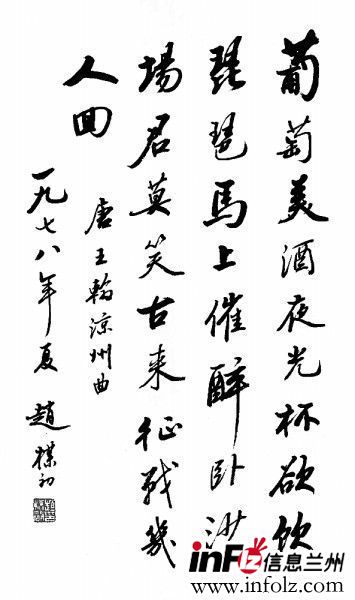 葡萄美酒夜光杯欲飲
琵琶馬上催醉卧沙
場君莫笑古来征戰幾
人回
唐王翰涼州曲
一九七八年夏 趙樸初
inF lz 信息兰州
www.infolz.com